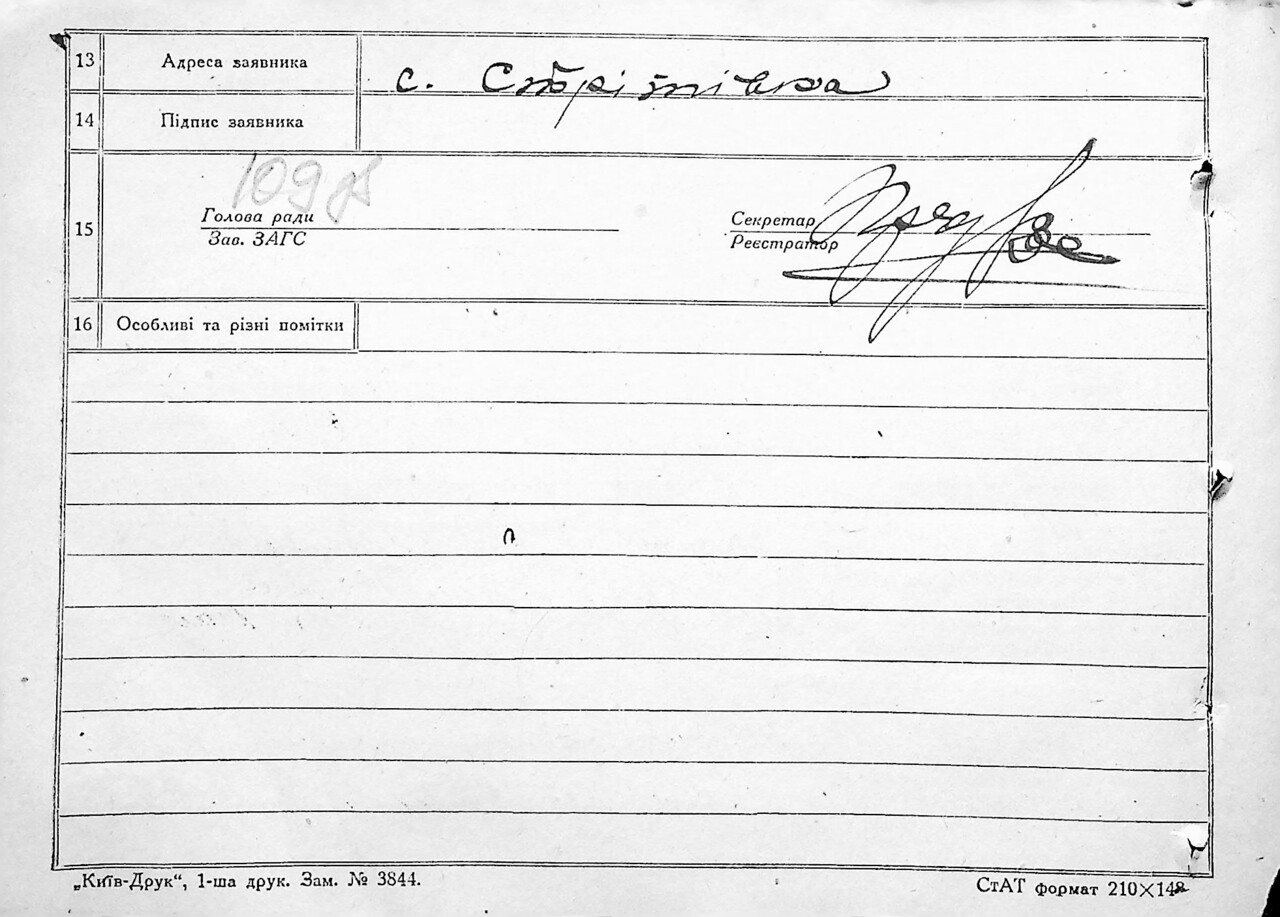 13 Адреса заявника с. Стрі
14 Підпис заявника
109
15 Голова ради Секретар
Зав. ЗАГС Реєстратор
16 Особливі та різні помітки
„Київ-Друк“, 1-ша друк. Зам. № 3844. СтАТ формат 210×148